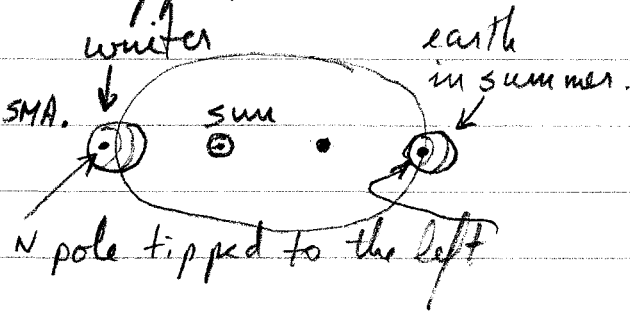 winter
earth
in summer.
SMA.
sun
N pole tipped to the left